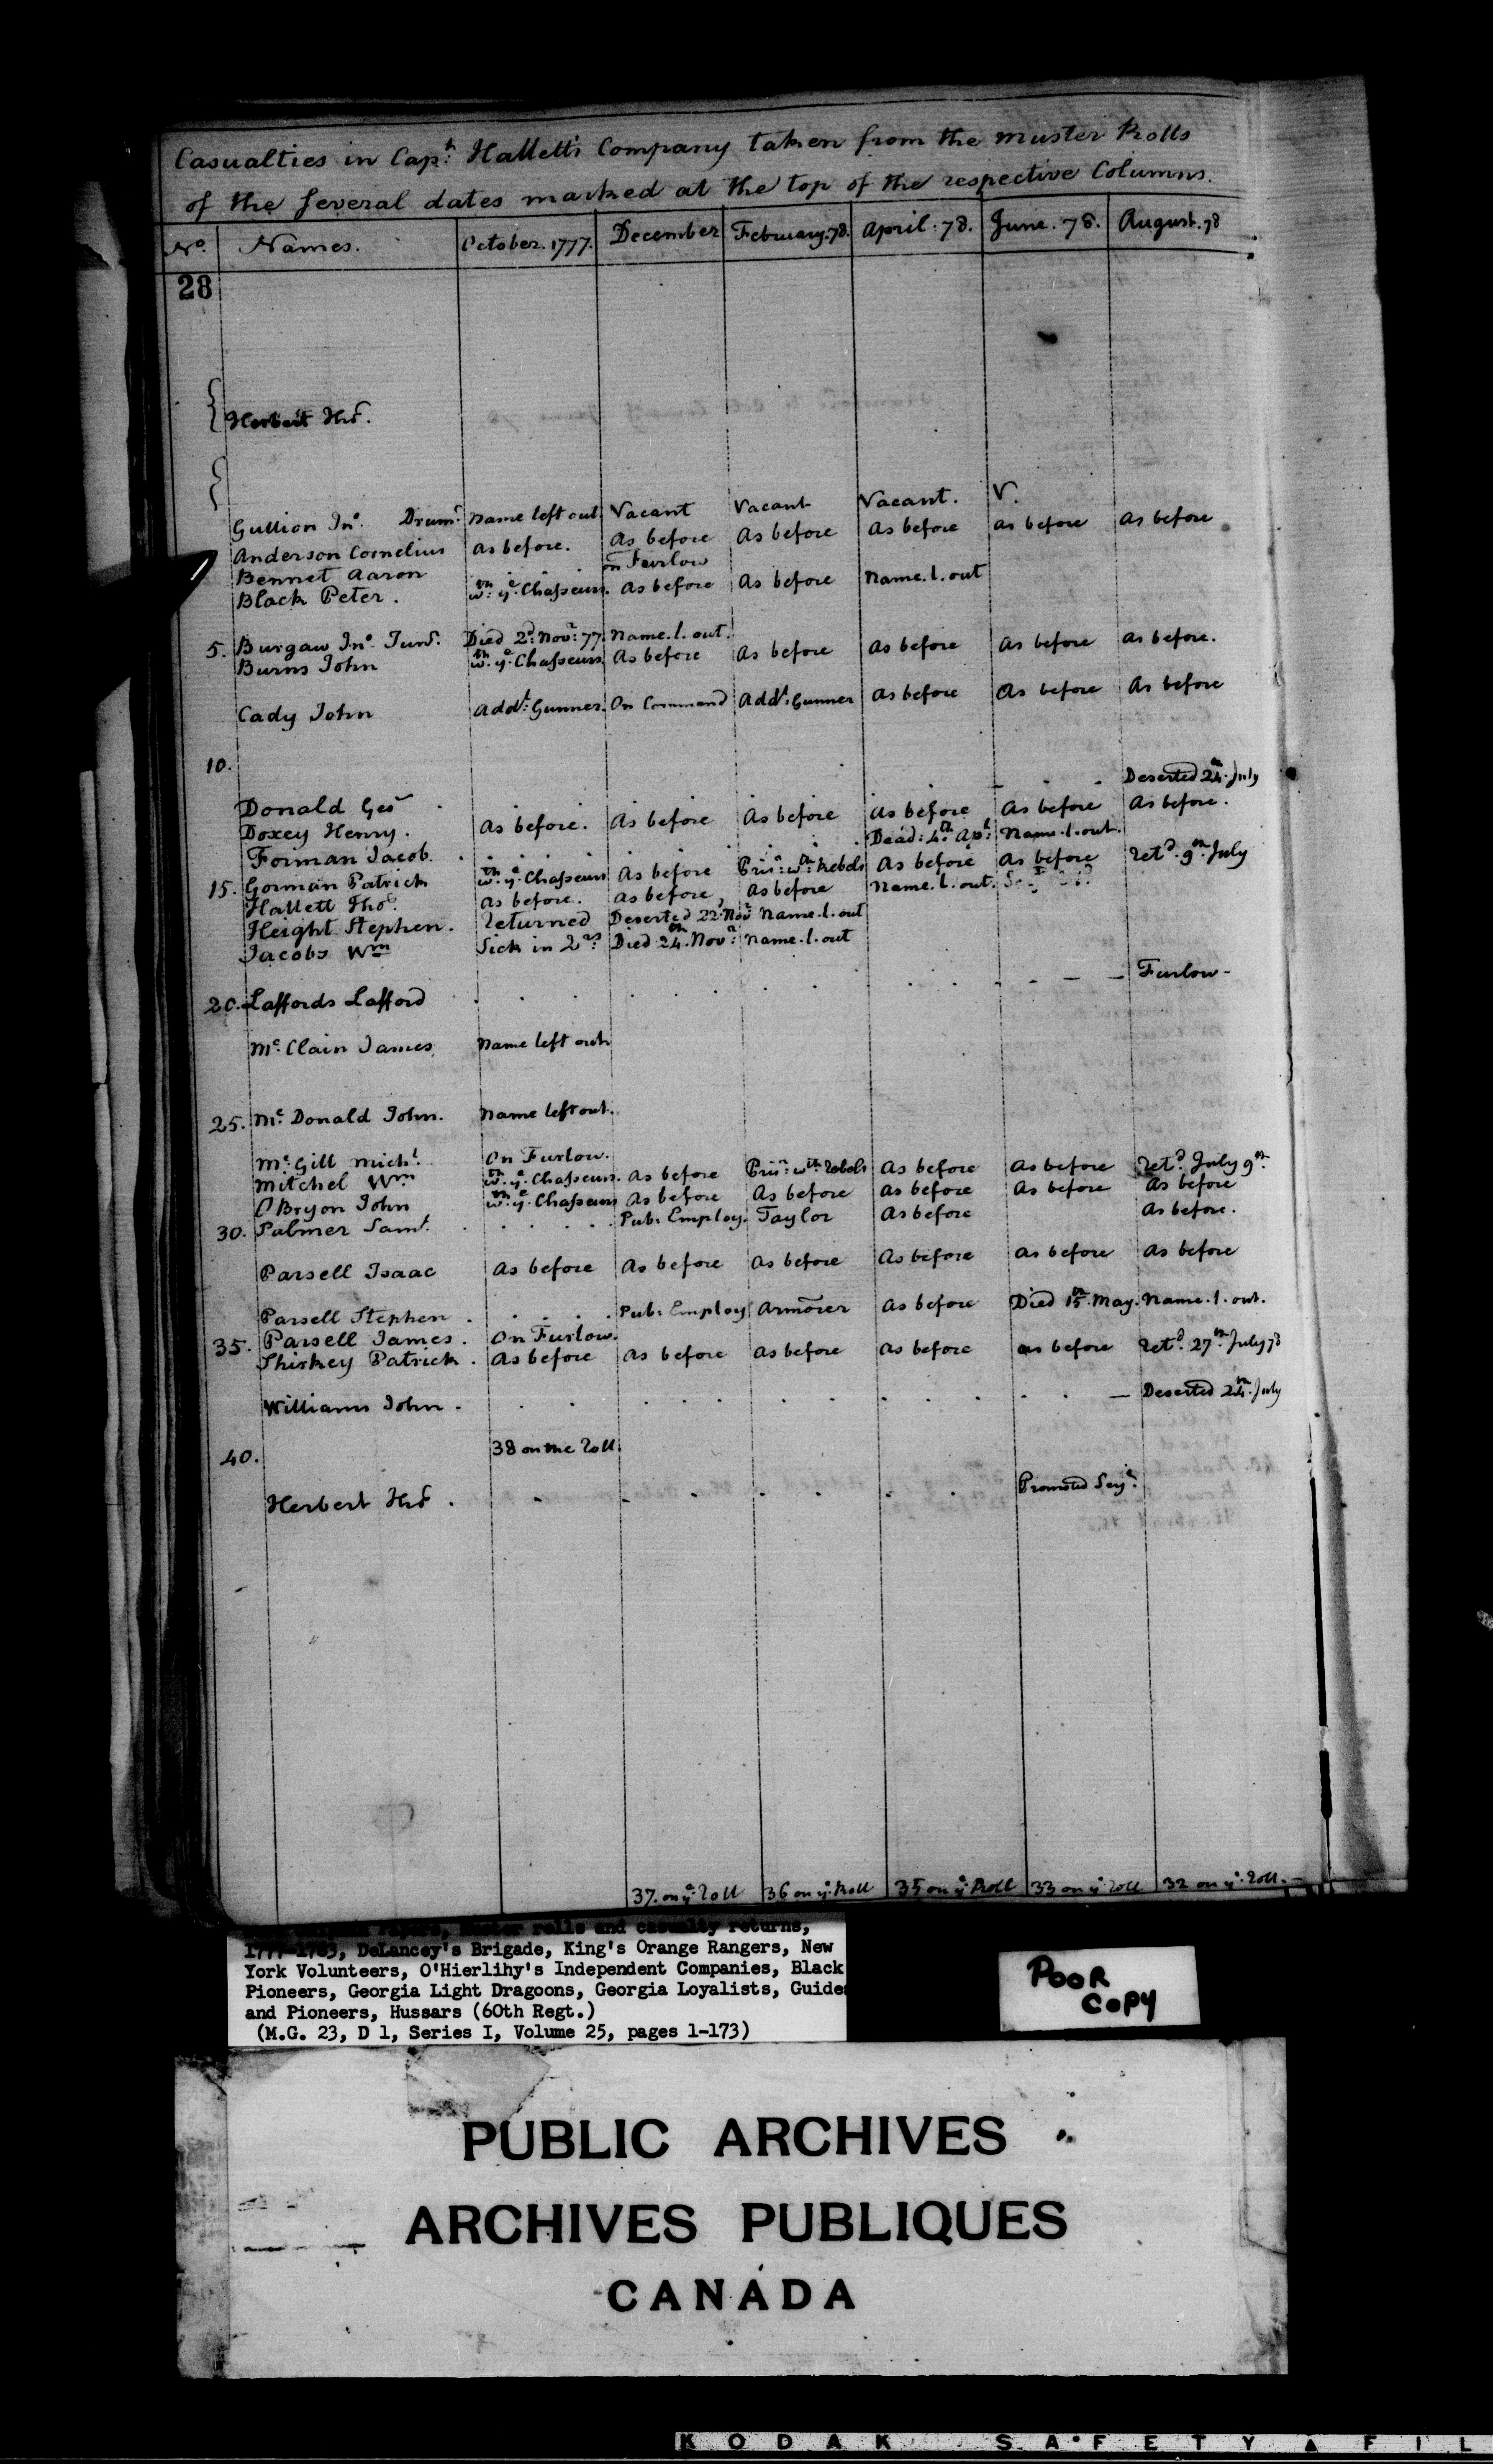 Casualties in Capt. Hallett's Company taken from the Muster Rolls
of the Several dates marked at the top of the respective Columns.
No. Names. October. 1777. December February.78. April. 78. June. 78. August. 78
28
Herbert Hrd.
Gullion Jno. Drumr. Name left out Vacant Vacant Vacant. V.
Anderson Cornelius as before. As before As before As before as before as before
Bennet Aaron . . . on Furlow
Black Peter. wth. ye. Chasseurs. As before As before Name. l. out
5. Burgaw Jno. Junr. Died 2d. Novr. 77. Name. l. out.
Burns John wth. ye. Chasseurs As before As before As before As before as before.
Cady John Addl. Gunner. On Command Addl. Gunner As before As before As before
10.
Donald Geo . . . . Deserted 24th. July
Doxey Henry. as before. As before As before As before As before As before.
Forman Jacob. . . . . Dead. 4th. Apl. Name. l. out.
15. Gorman Patrick wth. ye. Chasseurs As before Prisr. wth. Rebels As before As before Retd. 9th. July
Hallett Thos. as before. as before, As before Name. l. out.
Height Stephen. Returned Deserted 22 Novr Name. l. out
Jacobs Wm Sick in Qrs. Died 24th. Novr. Name. l. out
20. Laffords Lafford . . . . Furlow -
Mc. Clain James Name left out
25. Mc. Donald John. Name left out.
Mc. Gill Michl. On Furlow.
Mitchel Wm wth. ye. Chasseurs. As before Prisr. wth. Rebels As before As before Retd. July 9th.
OBryon John wth. ye. Chasseurs As before As before As before As before As before
30. Palmer Saml. . . . Pub. Employ. Taylor As before As before.
Parsell Isaac As before As before As before As before As before As before
Parsell Stephen . . . Pub. Employ Armorer As before Died 15th. May. Name. l. out.
35. Parsell James. On Furlow.
Shirkey Patrick. As before As before As before As before as before Retd. 27th. July 78
Williams John. . . . . — Deserted 24th. July
40. 38 on the Roll.
Herbert Hrd. . . . . Promoted Serjt.
37. on ye. Roll 36 on ye. Roll 35 on ye. Roll 33 on ye. Roll 32 on ye. Roll.
rolls and casualty returns,
1777-1783, DeLancey's Brigade, King's Orange Rangers, New
York Volunteers, O'Hierlihy's Independent Companies, Black
Pioneers, Georgia Light Dragoons, Georgia Loyalists, Guides
and Pioneers, Hussars (60th Regt.)
(M.G. 23, D 1, Series I, Volume 25, pages 1-173)
POOR
COPY
PUBLIC ARCHIVES
ARCHIVES PUBLIQUES
CANADA
KODAK SAFETY FIL